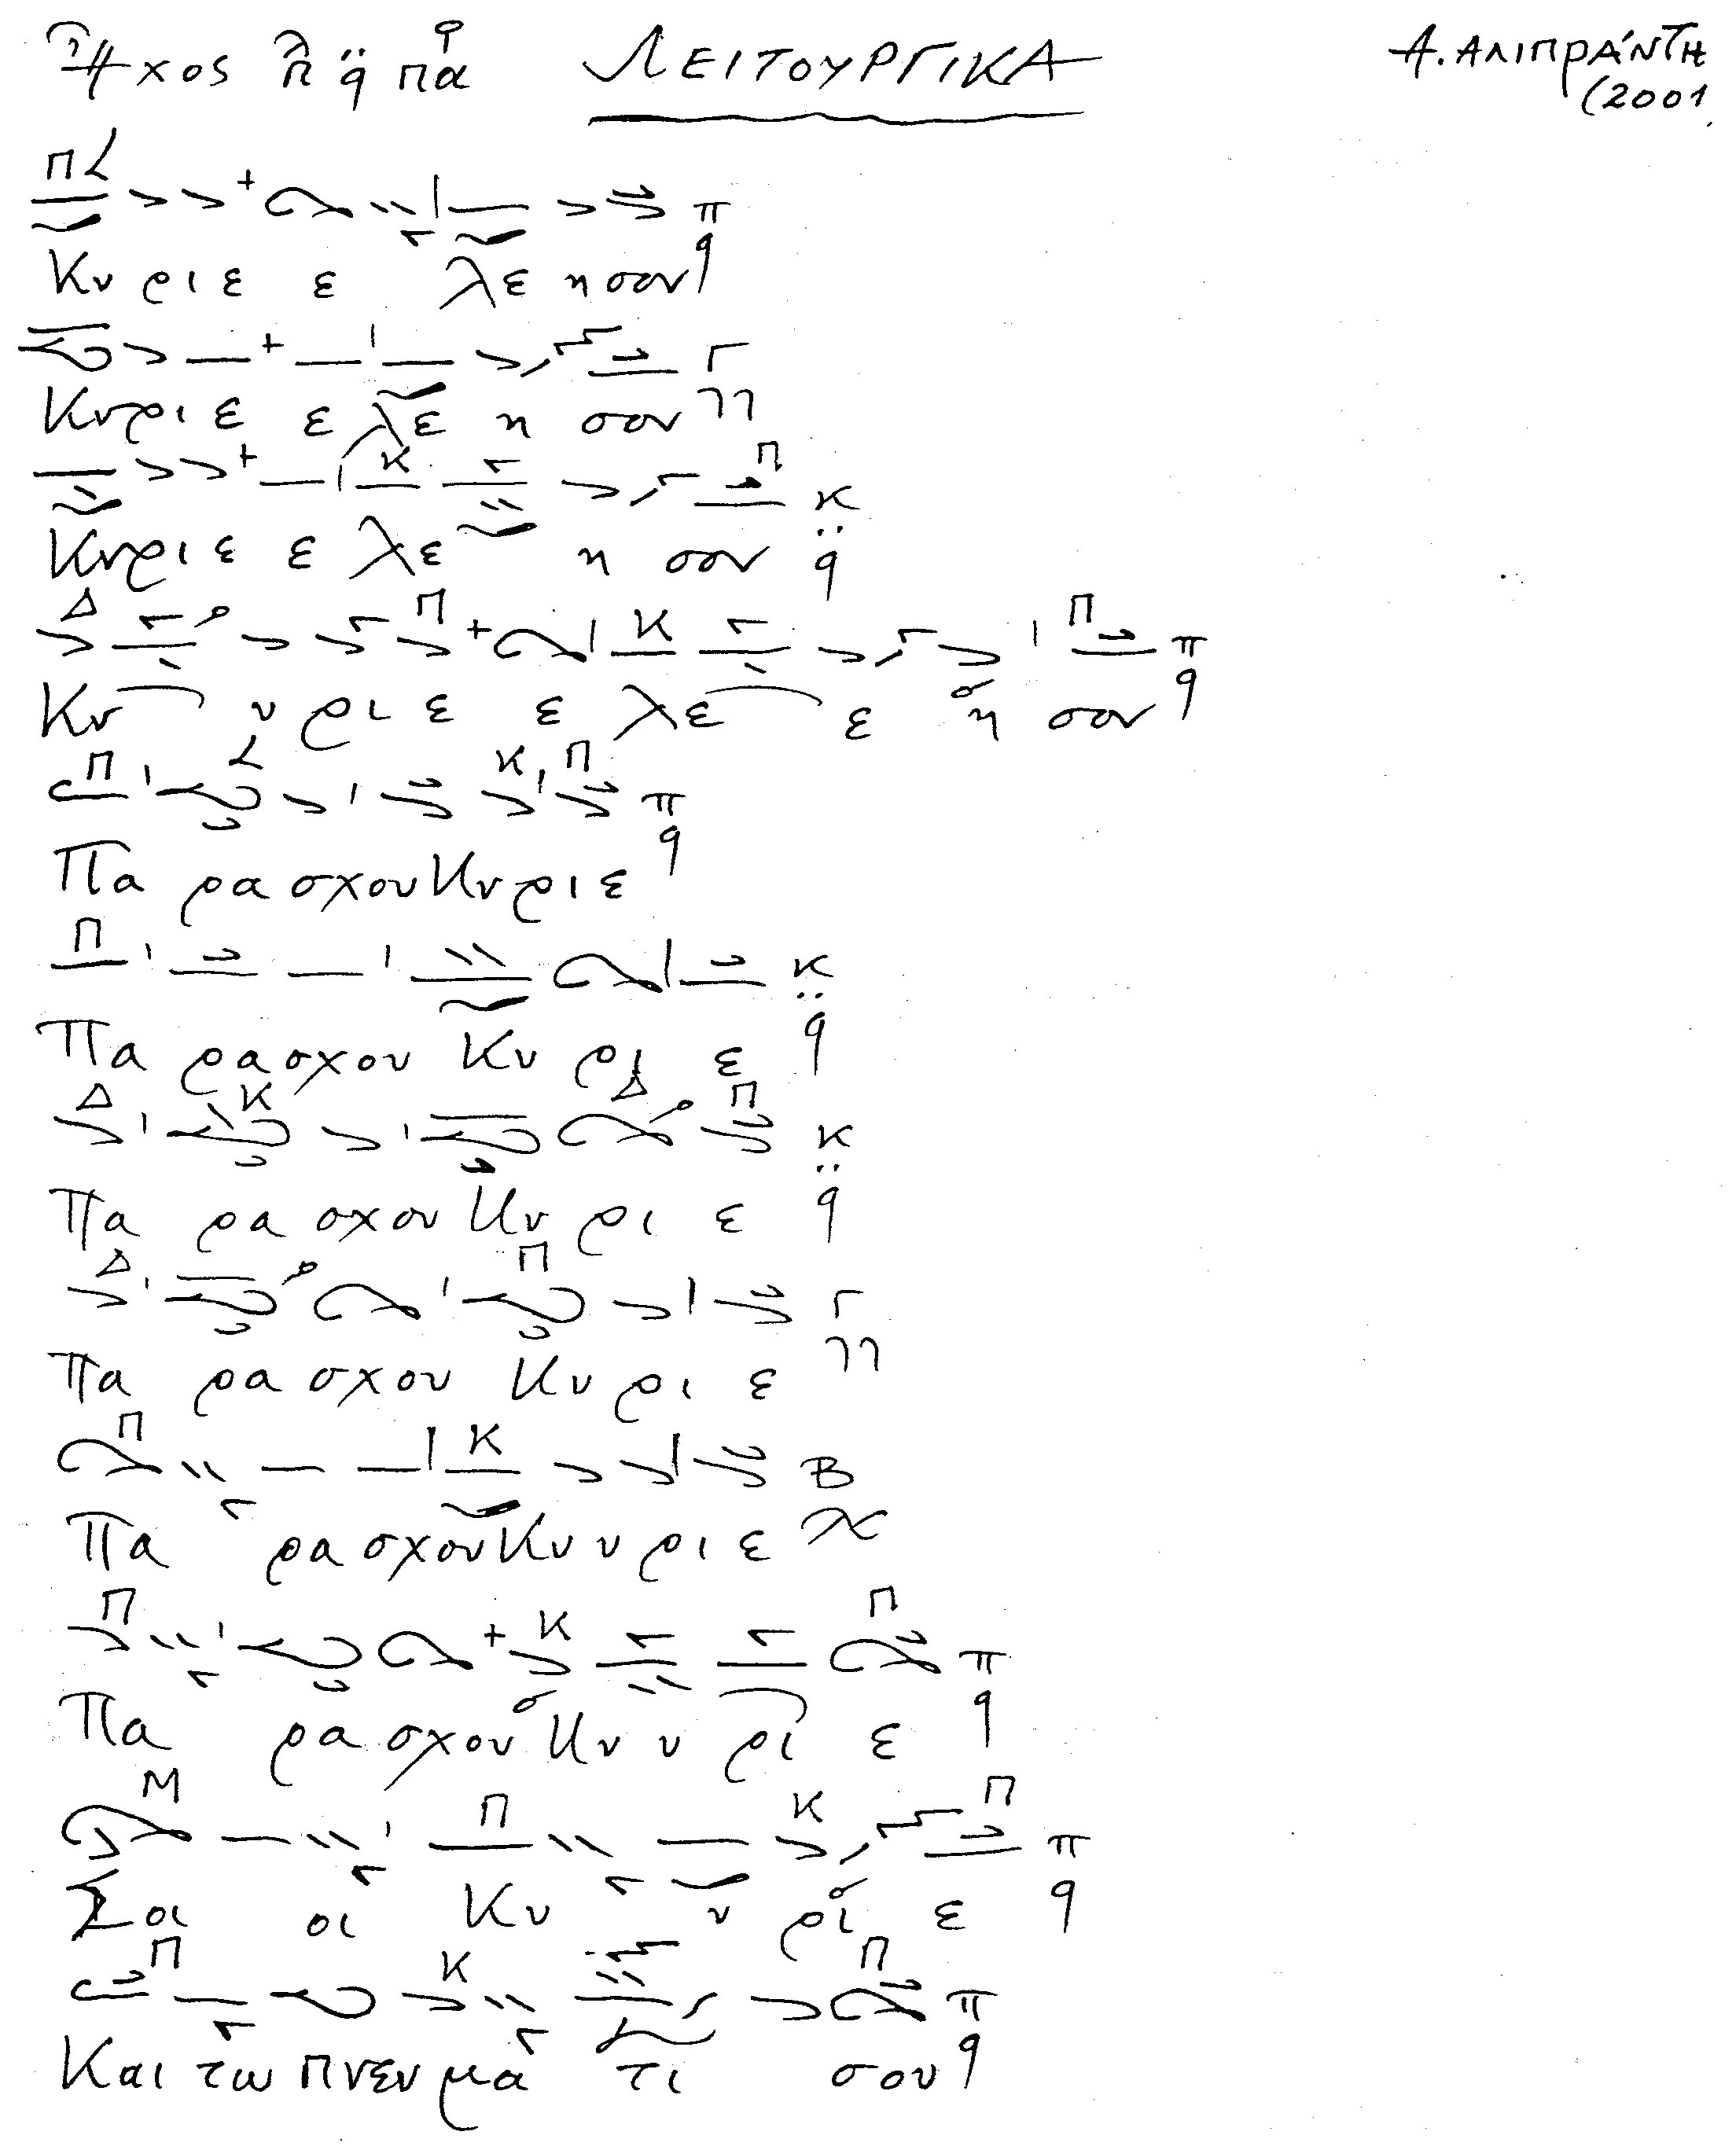 Ἦχος λ π ᾳ̈ πα ΛΕΙΤΟΥΡΓΙΚΑ Α. ΑΛΙΠΡΆΝΤΗ
(2001
Κυ ρι ε ε λε η σον
Κυρι ε ε λε η σον
Κυρι ε ε λε η σον
Κυ υ ρι ε ε λε ε η σον
Πα ρα σχου Κυ ρι ε
Πα ρα σχου Κυ ρι ε
Πα ρα σχου Κυ ρι ε
Πα ρα σχου Κυ ρι ε
Πα ρα σχου Κυ υ ρι ε
Πα ρα σχου Κυ υ ρι ε
Σοι οι Κυ υ ρι ε
Και τω πνευ μα τι σου